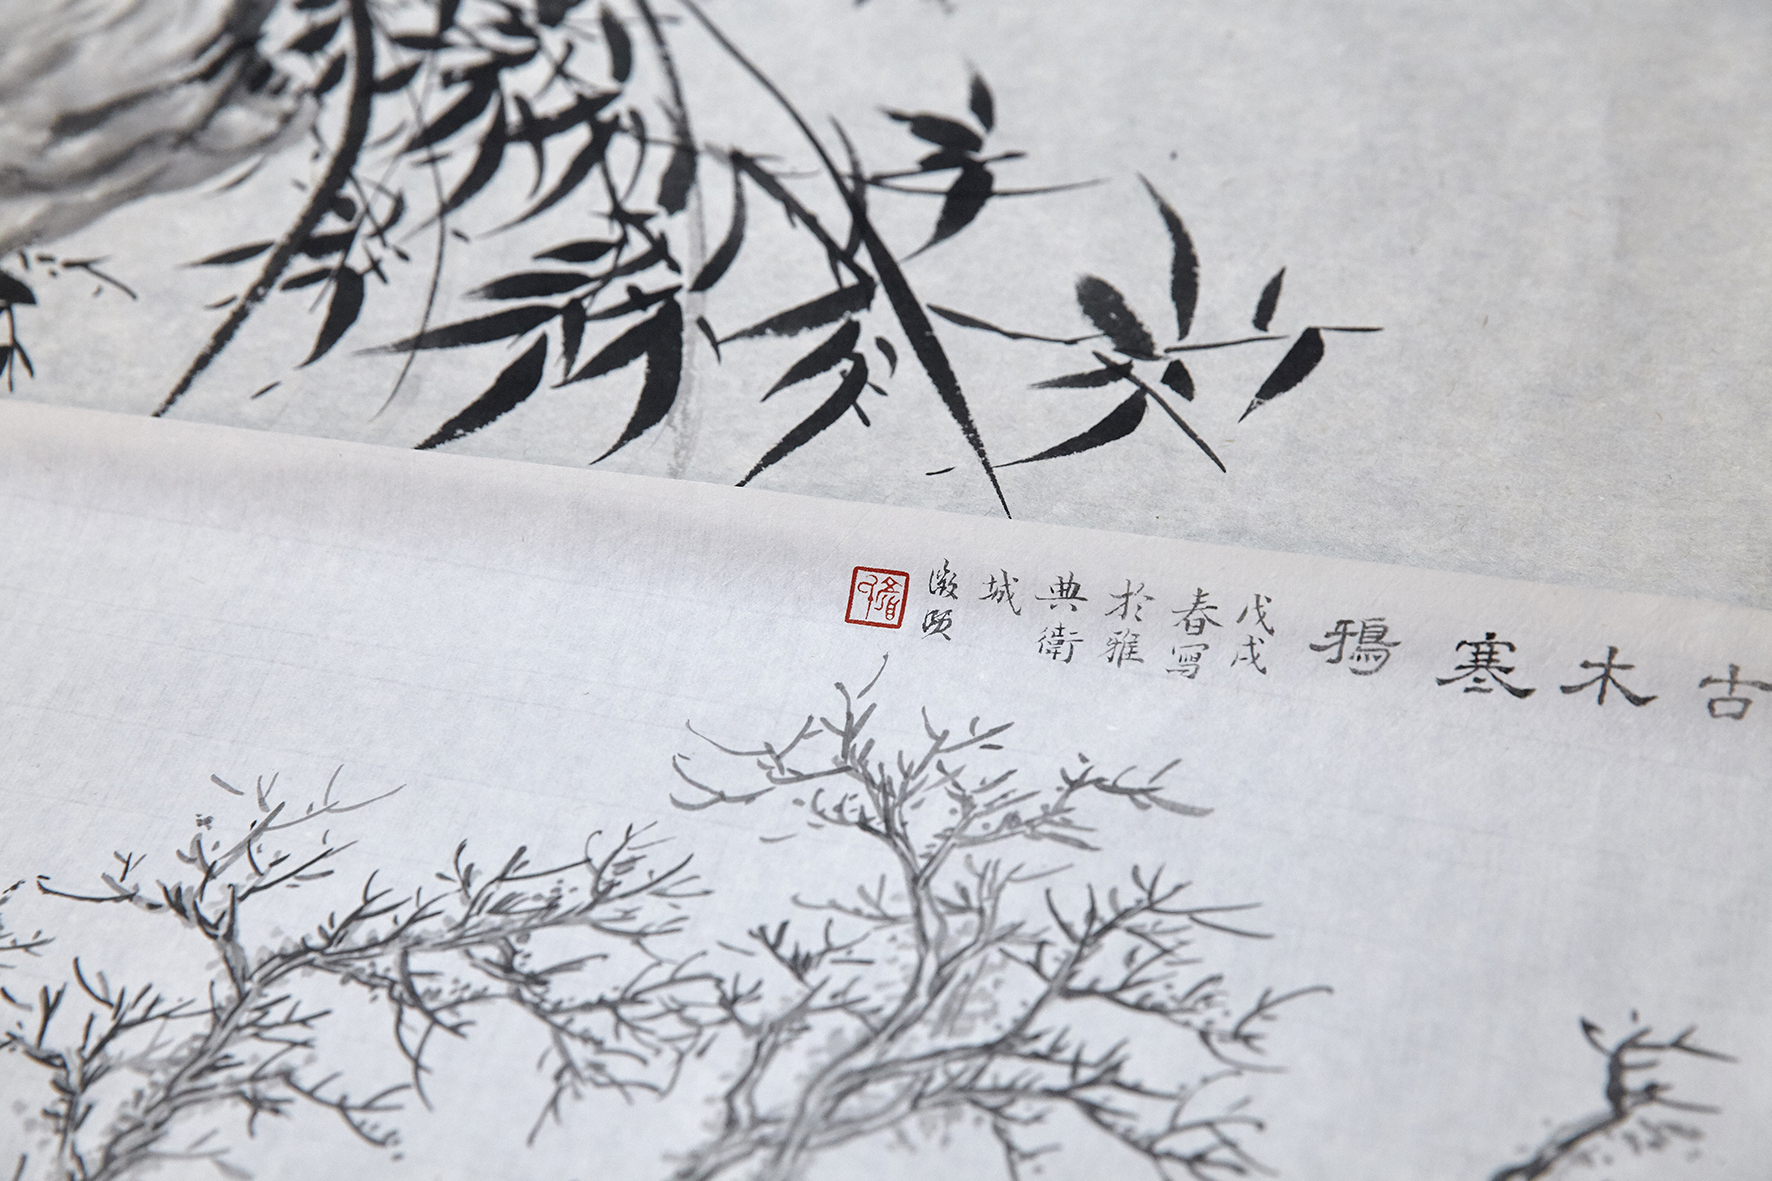 古木寒鴉
戊戌
春寫
於雅
典衛
城